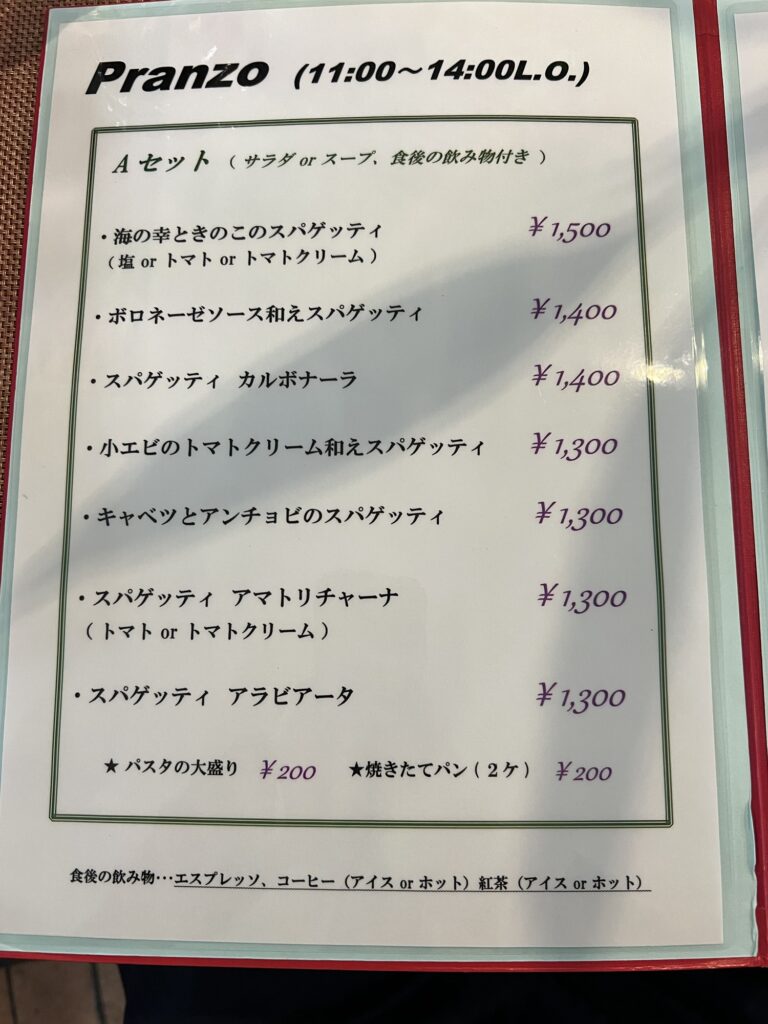 Pranzo (11:00～14:00L.O.)
Aセット（サラダ or スープ、食後の飲み物付き）
・海の幸ときのこのスパゲッティ ￥1,500
（塩 or トマト or トマトクリーム）
・ボロネーゼソース和えスパゲッティ ￥1,400
・スパゲッティ カルボナーラ ￥1,400
・小エビのトマトクリーム和えスパゲッティ ￥1,300
・キャベツとアンチョビのスパゲッティ ￥1,300
・スパゲッティ アマトリチャーナ ￥1,300
（トマト or トマトクリーム）
・スパゲッティ アラビアータ ￥1,300
★パスタの大盛り ￥200 ★焼きたてパン(２ケ) ￥200
食後の飲み物…エスプレッソ、コーヒー（アイス or ホット）紅茶（アイス or ホット）